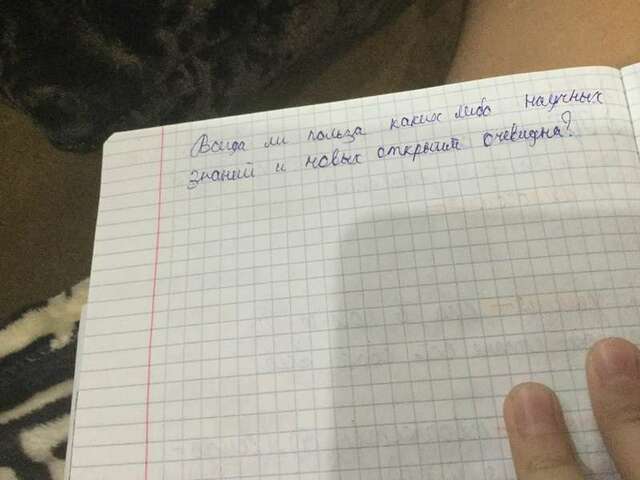 Всегда ли польза каких либо научных
знаний и новых открытий очевидна?